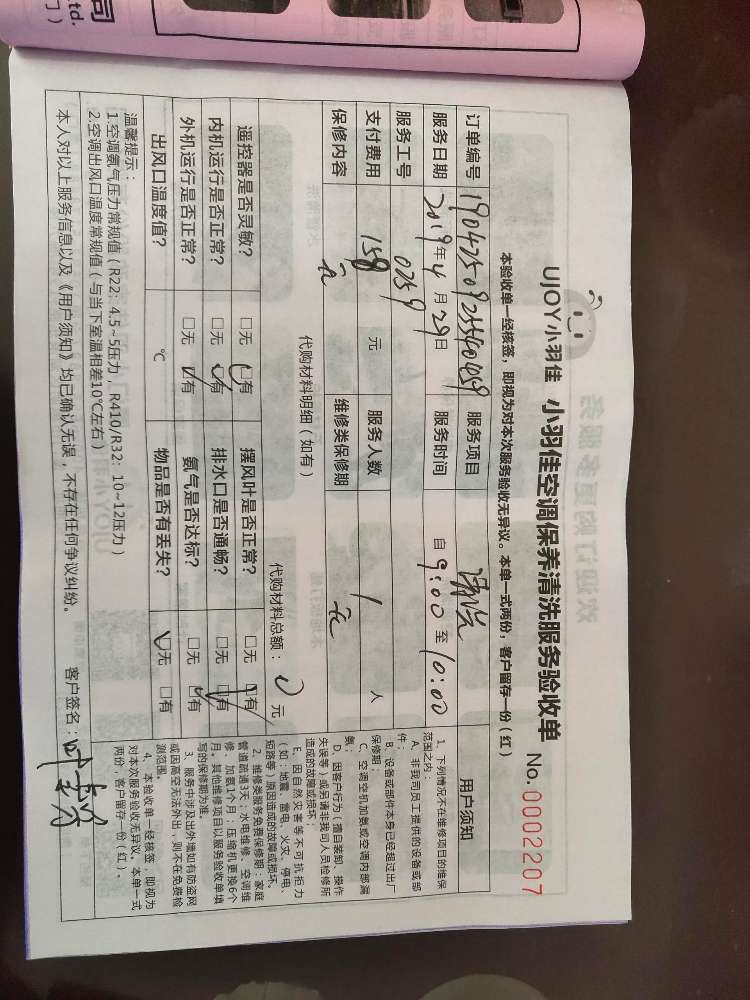 司
td.
UJOY小羽佳 小羽佳空调保养清洗服务验收单 No. 0002207
本验收单一经核签，即视为对本次服务验收无异议。本单一式两份，客户留存一份（红）
订单编号 19042509255540459 服务项目 清洗
服务日期 2019年4月29日 服务时间 自 9:00 至 10:00
服务工号 0759
支付费用 158 元 服务人数 1 人
保修内容 无 维修类保修期 无
代购材料明细（如有）
代购材料总额：0 元
遥控器是否灵敏？ □无 ☑有 摆风叶是否正常？ □无 ☑有
内机运行是否正常？ □无 ☑有 排水口是否通畅？ □无 ☑有
外机运行是否正常？ □无 ☑有 氨气是否达标？ □无 ☑有
出风口温度值？ ℃ 物品是否有丢失？ ☑无 □有
温馨提示：
1.空调氨气压力常规值（R22：4.5~5压力，R410/R32：10~12压力）
2.空调出风口温度常规值（与当下室温相差10℃左右）
本人对以上服务信息以及《用户须知》均已确认无误，不存在任何争议纠纷。 客户签名：
用户须知
1、下列情况不在维修项目的维保
范围之内：
A、非我司员工提供的设备或部
件；
B、设备或部件本身已经超过出厂
保修期；
C、空调空机加氨或空调内部漏
氨；
D、因客户行为（擅自装卸、操作
失误等）或另请非我司人员检修所
造成的故障或损坏；
E、因自然灾害等不可抗拒力
（如：地震、雷电、火灾、停电、
短路等）原因造成的故障或损坏。
2、维修类服务免费保修期：家庭
管道疏通3天；水电维修、空调维
修、加氨1个月；压缩机更换6个
月。其他维修项目以服务验收单填
写的保修期为准。
3、服务中涉及出外墙如有防盗网
或因高空无法外出，则不在免费检
测范围。
4、本验收单一经核签，即视为
对本次服务验收无异议。本单一式
两份，客户留存一份（红）。